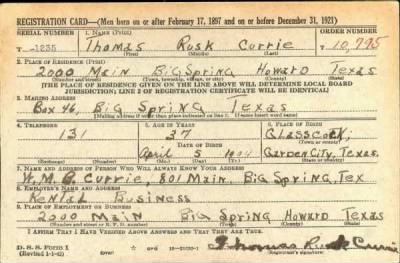 REGISTRATION CARD—(Men born on or after February 17, 1897 and on or before December 31, 1921)
SERIAL NUMBER 1. NAME (Print) ORDER NUMBER
T-1235 Thomas Rusk Currie T 10,795
(First) (Middle) (Last)
2. PLACE OF RESIDENCE (Print)
2000 Main Big Spring Howard Texas
(Number and street) (Town, township, village, or city) (County) (State)
[THE PLACE OF RESIDENCE GIVEN ON THE LINE ABOVE WILL DETERMINE LOCAL BOARD
JURISDICTION; LINE 2 OF REGISTRATION CERTIFICATE WILL BE IDENTICAL]
3. MAILING ADDRESS
Box 46, Big Spring Texas
[Mailing address if other than place indicated on line 2. If same insert word same]
4. TELEPHONE 5. AGE IN YEARS 6. PLACE OF BIRTH
131 37 Glasscock,
DATE OF BIRTH (Town or county)
April 5 1904 Garden City, Texas
(Exchange) (Number) (Mo.) (Day) (Yr.) (State or country)
7. NAME AND ADDRESS OF PERSON WHO WILL ALWAYS KNOW YOUR ADDRESS
801 Main, Big Spring, Tex
8. EMPLOYER'S NAME AND ADDRESS
Rental Business
9. PLACE OF EMPLOYMENT OR BUSINESS
2000 Main Big Spring Howard Texas
(Number and street or R. F. D. number) (Town) (County) (State)
I AFFIRM THAT I HAVE VERIFIED ABOVE ANSWERS AND THAT THEY ARE TRUE.
D. S. S. Form 1
(Revised 1-1-42) (over) Thomas Rusk Currie